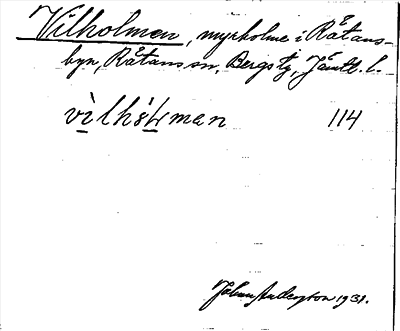 Vilholmen, myrholme i Råtans-
byn, Råtans sn, Bergs tg, Jämtl. l.
114
Johan Anderzton 1931.